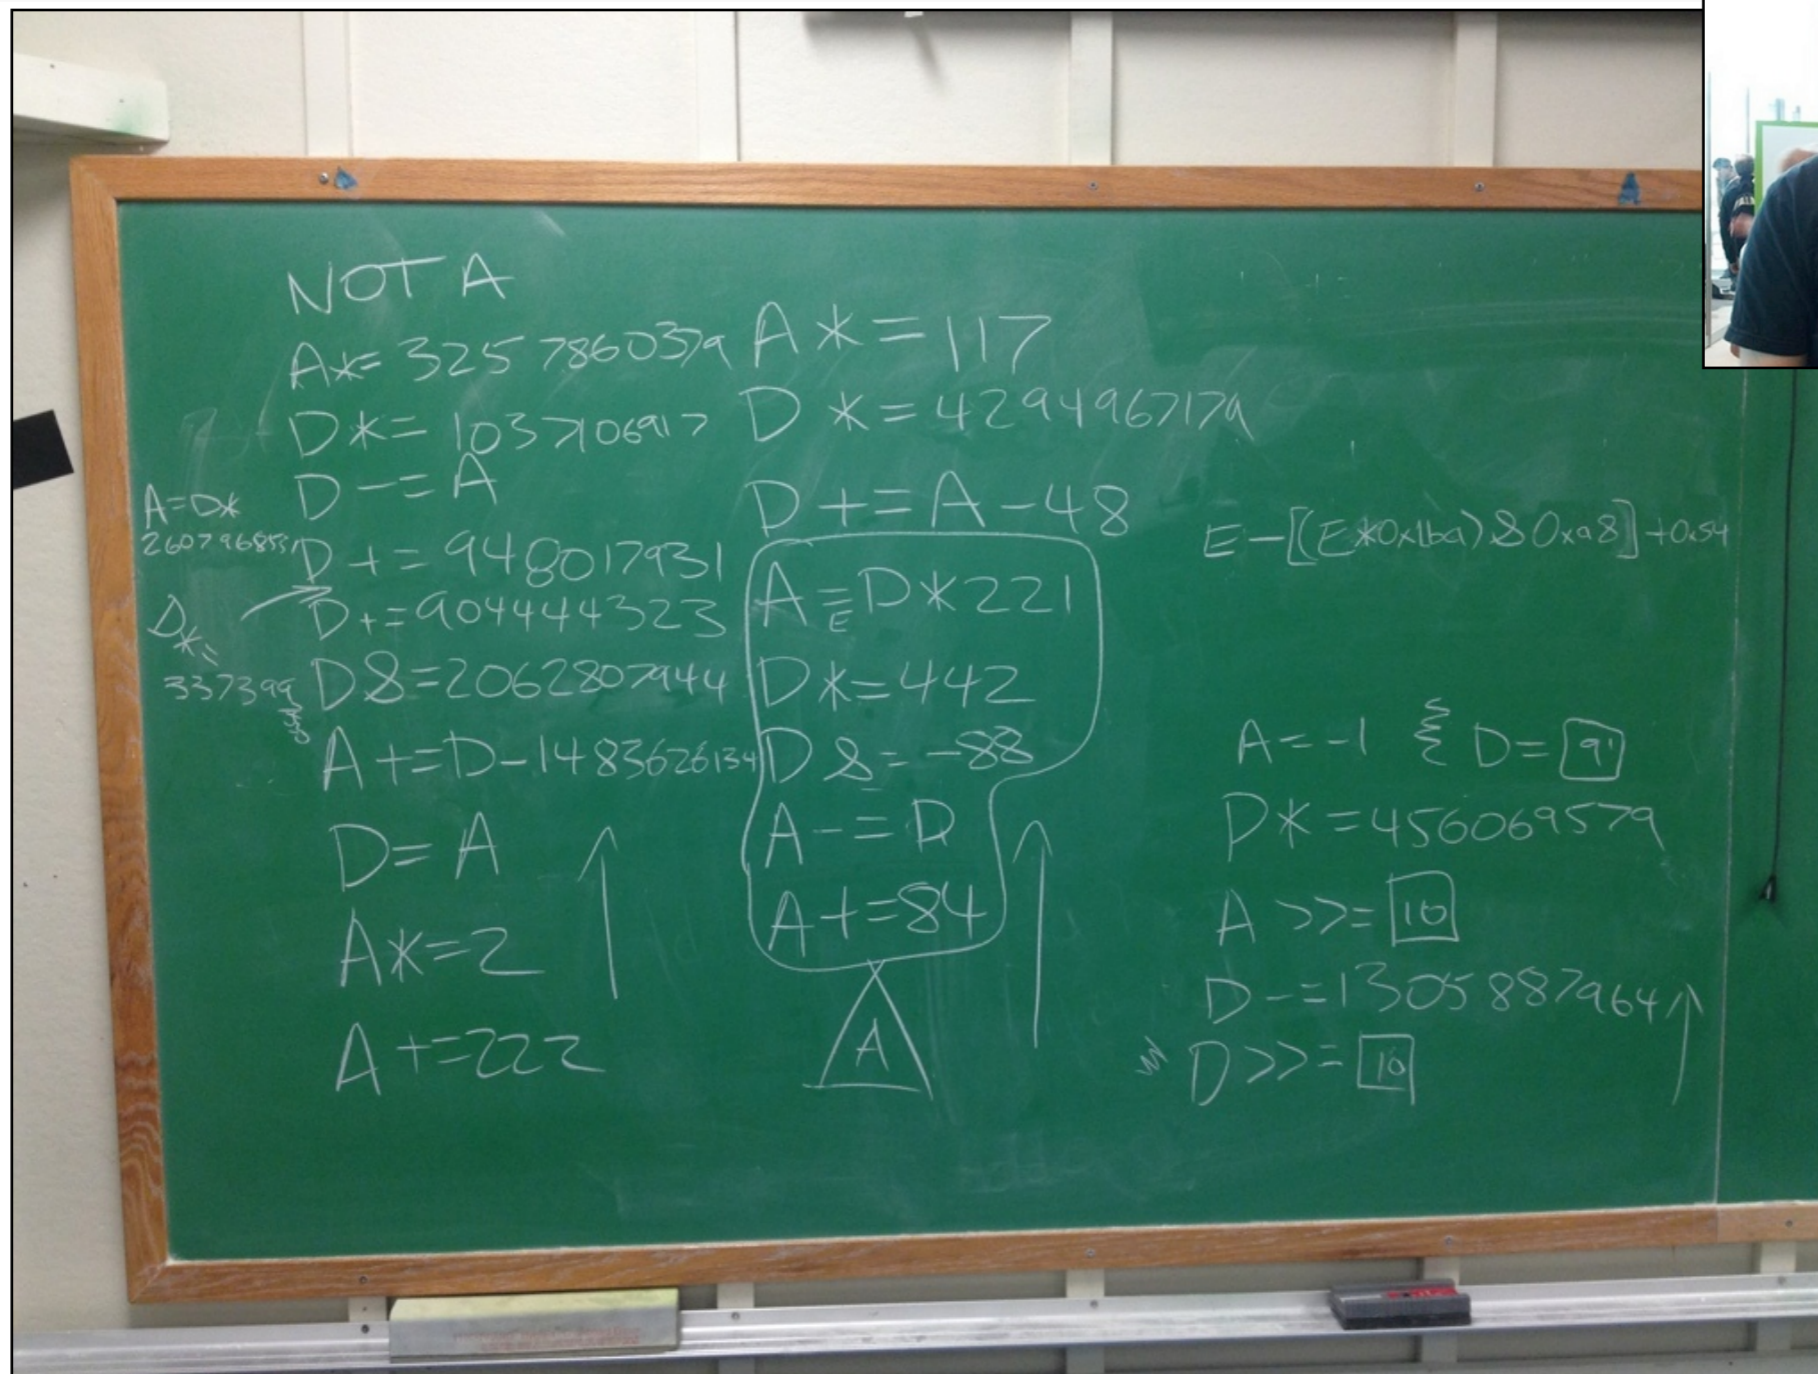 NOT A
A*= 3257860379
D*= 1037106917
D-=A
A=D*
D+= 948017931
D+=904444323
D*=
D&=2062807944
A+=D-1483626134
D=A
A*=2
A+=222
A*=117
D*=4294967179
D+=A-48
A=D*221
E
D*=442
D&=-88
A-=D
A+=84
A
E-[(E*0x1ba)&0xa8]+0x54
A=-1 { D= 91
D*=456069579
A >>= 10
D-=1305887964
D>>= 10